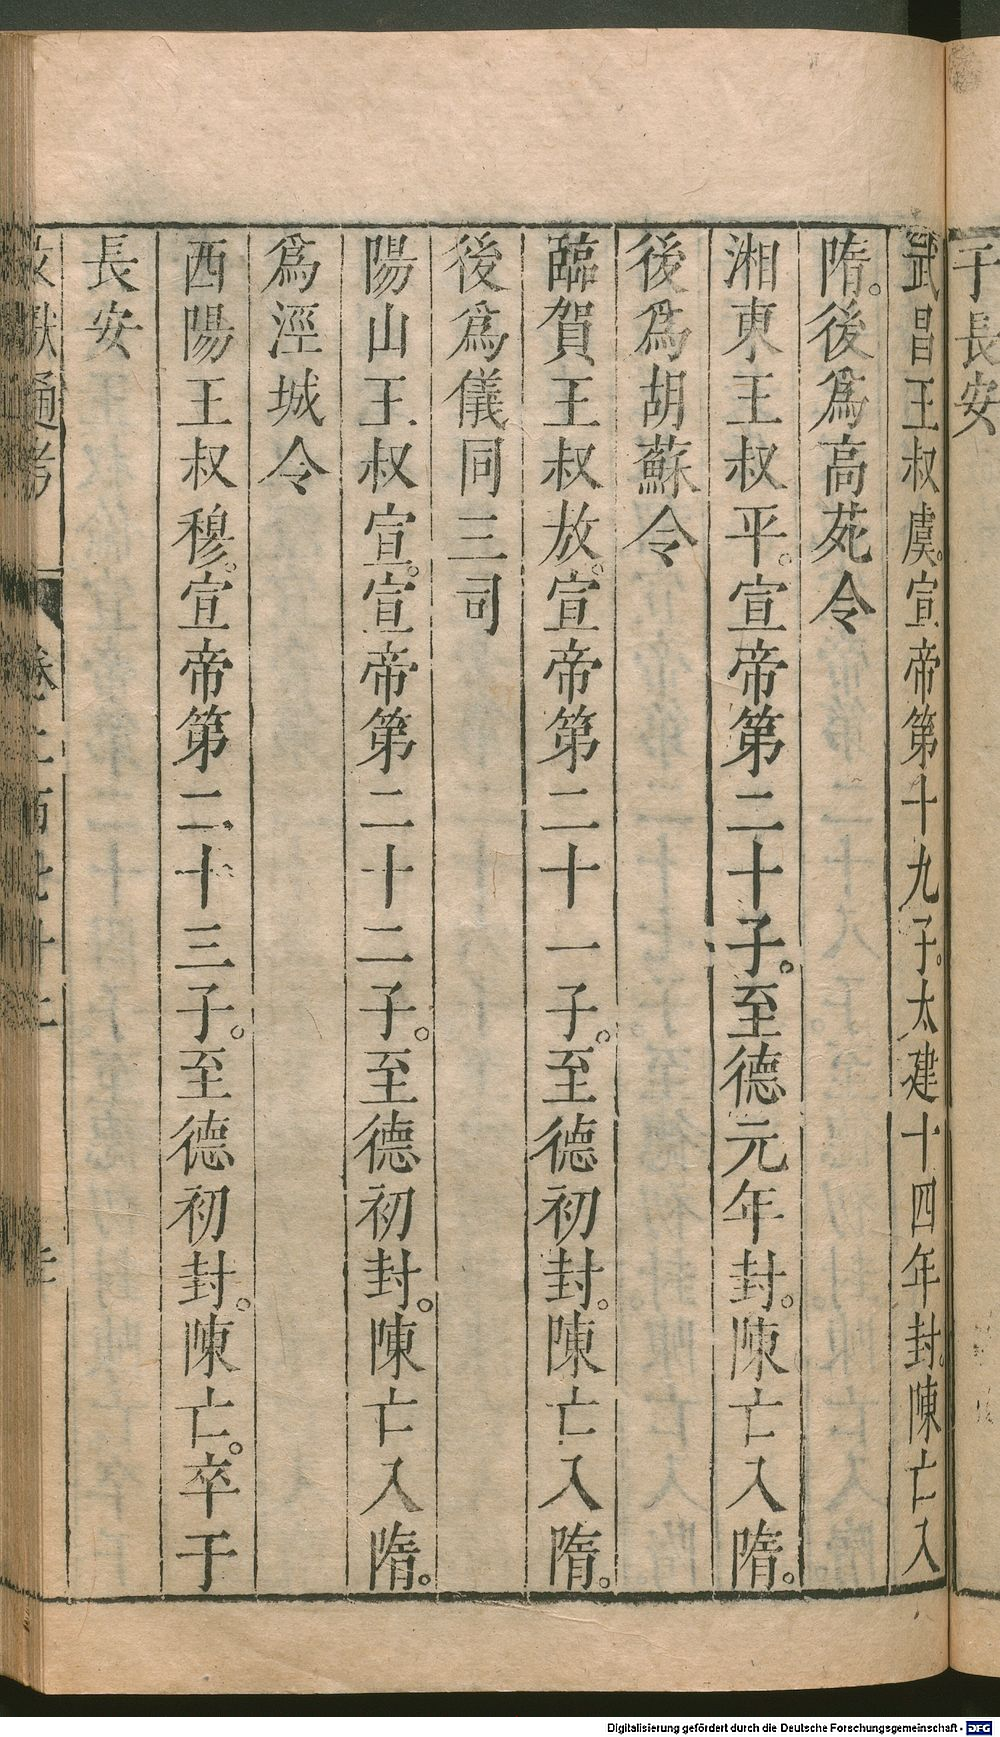 于長安
武昌王叔虞。宣帝第十九子。太建十四年封。陳亡入
隋。後爲高苑令
湘東王叔平。宣帝第二十子。至德元年封。陳亡入隋。
後爲胡蘇令
臨賀王叔敖。宣帝第二十一子。至德初封。陳亡入隋。
後爲儀同三司
陽山王叔宣。宣帝第二十二子。至德初封。陳亡入隋。
爲涇城令
西陽王叔穆。宣帝第二十三子。至德初封。陳亡。卒于
長安
文獻通考 卷二百七十二
Digitalisierung gefördert durch die Deutsche Forschungsgemeinschaft - DFG